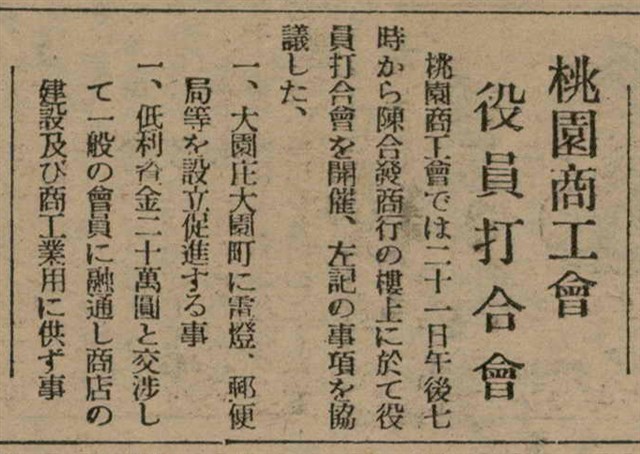 桃園商工會
役員打合會
桃園商工會では二十一日午後七
時から陳合發商行の樓上に於て役
員打合會を開催、左記の事項を協
議した、
一、大園庄大園町に電燈、郵便
局等を設立促進する事
一、低利資金二十萬圓と交渉し
て一般の會員に融通し商店の
建設及び商工業用に供ず事